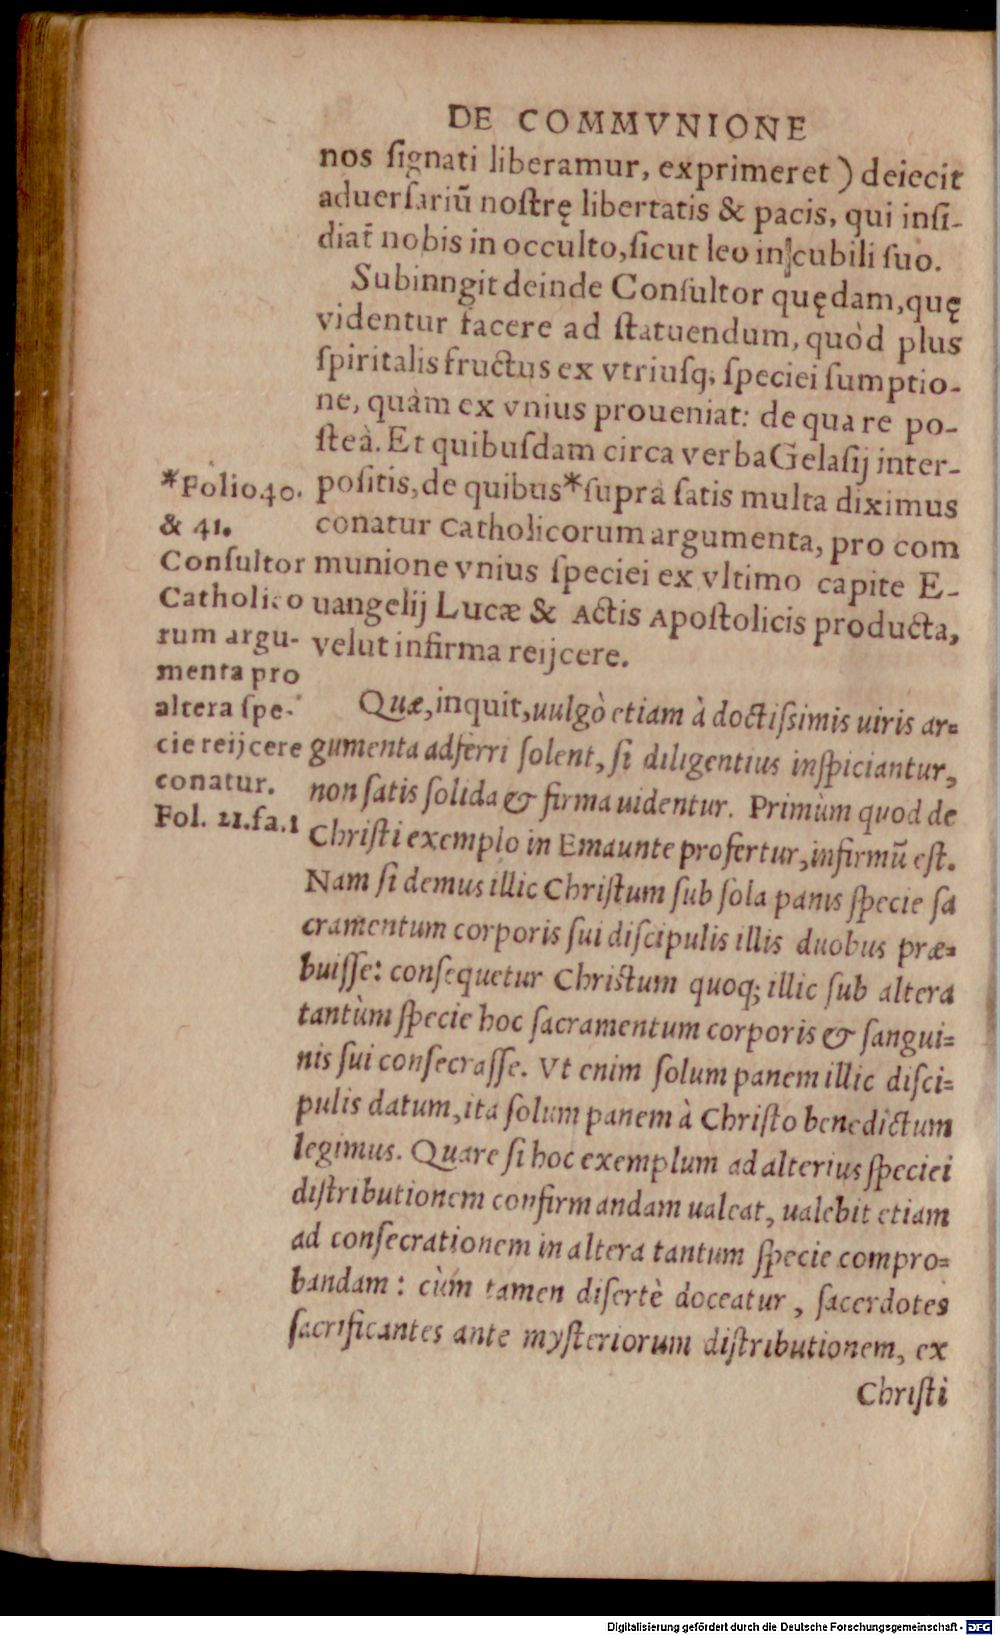 DE COMMVNIONE
nos ſignati liberamur, exprimeret ) deiecit
aduerſariū noſtrę libertatis & pacis, qui inſi-
diat̄ nobis in occulto, ſicut leo in cubili ſuo.
Subinngit deinde Conſultor quędam, quę
videntur facere ad ſtatuendum, quòd plus
ſpiritalis fructus ex vtriuſq; ſpeciei ſumptio-
ne, quàm ex vnius proueniat: de qua re po-
ſteà. Et quibuſdam circa verba Gelaſij inter-
poſitis, de quibus*ſuprà ſatis multa diximus
conatur Catholicorum argumenta, pro com
munione vnius ſpeciei ex vltimo capite E-
uangelij Lucæ & Actis Apoſtolicis producta,
velut infirma reijcere.
*Folio 40.
& 41.
Conſultor
Catholico
rum argu-
menta pro
altera ſpe-
cie reijcere
conatur.
Fol. 21. fa. 1
Quæ, inquit, uulgò etiam à doctiſsimis uiris ar=
gumenta adferri ſolent, ſi diligentius inſpiciantur,
non ſatis ſolida & firma uidentur. Primùm quod de
Chriſti exemplo in Emaunte profertur, infirmū eſt.
Nam ſi demus illic Chriſtum ſub ſola panis ſpecie ſa
cramentum corporis ſui diſcipulis illis duobus præ=
buiſſe: conſequetur Chriſtum quoq; illic ſub altera
tantùm ſpecie hoc ſacramentum corporis & ſangui=
nis ſui conſecraſſe. Vt enim ſolum panem illic diſci=
pulis datum, ita ſolum panem à Chriſto benedictum
legimus. Quare ſi hoc exemplum ad alterius ſpeciei
diſtributionem confirmandam ualeat, ualebit etiam
ad conſecrationem in altera tantum ſpecie compro=
bandam: cùm tamen diſertè doceatur, ſacerdotes
ſacrificantes ante myſteriorum diſtributionem, ex
Chriſti
Digitalisierung gefördert durch die Deutsche Forschungsgemeinschaft - DFG